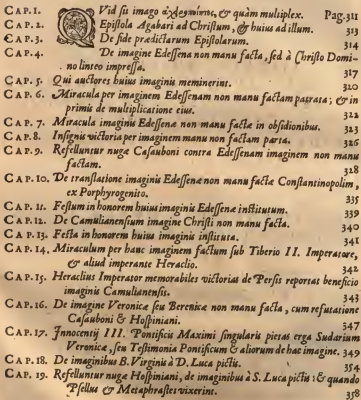 CAP. 1. QVid sit imago ἀχειροποίητος, & quàm multiplex. Pag. 311
CAP. 2. Epistola Agabari ad Christum, & huius ad illum. 313
CAP. 3. De fide prædictarum Epistolarum. 314
CAP. 4. De imagine Edessena non manu facta, sed à Christo Domi-
no linteo impressa. 317
CAP. 5. Qui auctores huius imaginis meminerint. 320
CAP. 6. Miracula per imaginem Edessenam non manu factam patrata; & in
primis de multiplicatione eius. 322
CAP. 7. Miracula imaginis Edessenæ non manu factæ in obsidionibus. 325
CAP. 8. Insignis victoria per imaginem manu non factam parta. 326
CAP. 9. Refelluntur nugæ Casauboni contra Edessenam imaginem non manu
factam. 328
CAP. 10. De translatione imaginis Edessenæ non manu factæ Constantinopolim,
ex Porphyrogenito. 335
CAP. 11. Festum in honorem huius imaginis Edessenæ institutum. 339
CAP. 12. De Camulianensium imagine Christi non manu facta. 340
CAP. 13. Festa in honorem huius imaginis instituta. 341
CAP. 14. Miraculum per hanc imaginem factum sub Tiberio II. Imperatore,
& aliud imperante Heraclio. 342
CAP. 15. Heraclius Imperator memorabiles victorias de Persis reportat beneficio
imaginis Camulianensis. 343
CAP. 16. De imagine Veronicæ seu Berenicæ non manu facta, cum refutatione
Casauboni & Hospiniani. 347
CAP. 17. Innocentij III. Pontificis Maximi singularis pietas erga Sudarium
Veronicæ, seu Testimonia Pontificum & aliorum de hac imagine. 349
CAP. 18. De imaginibus B. Virginis à D. Luca pictis. 354
CAP. 19. Refelluntur nugæ Hospiniani, de imaginibus à S. Luca pictis: & quando
Psellus & Metaphrastes vixerint. 358